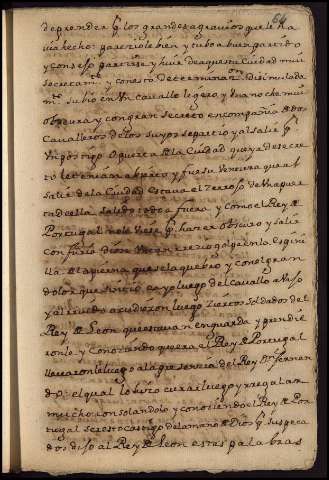 64
de prender q̃ los grandes agravios que le ha
via hecho: pareciole bien y tubo a buen partido
y consejo y huir de aquesta Ciudad mui
secretam.te y con esto Determinaz.on Disimulada
m.te subio en Un Cavallo ligero, y Una noche mui
obscura y con gran secreto en compañia de dos
Cavalleros de los suyos se partio y al salir
Un postigo o puerta de la Ciudad que ya de secre
to le tenian abierto y fue su Ventura que al
salir de la Ciudad estava el zerrojo de Una puer
ta della salido todo a fuera y como el Rey de
Portugal no le Viese q̃ hacer obscuro y salir
con furia dio en Un gran golpe en la Espini
lla de la pierna que se la quebro y con el gran
dolor que sintio cayo luego del Cavallo a Vajo
y al ruido acudieron luego ziertos soldados del
Rey de Leon que estavan en guarda y prendie
ronle y Conociendo que era el Rey de Portugal
llevaronle luego a la presencia del Rey D.n Fernan
do: el qual lo hizo curar luego y regalar
mucho consolandolo y conociendo el Rey de Por
tugal ser esto castigo de la mano de Dios q̃ sus peca
dos dijo al Rey de Leon estas palabras